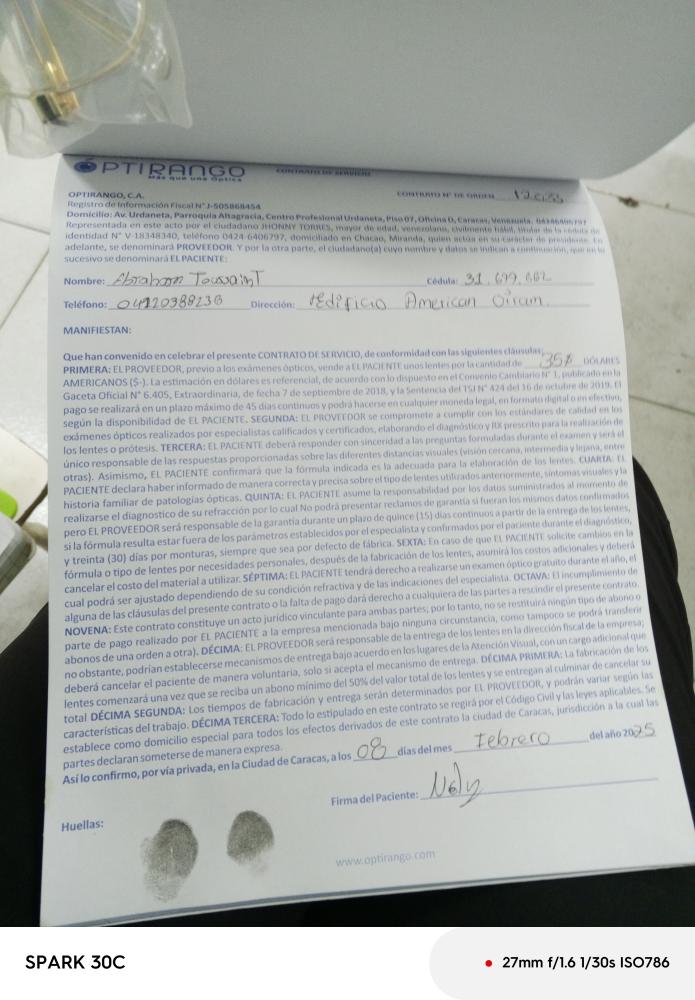 ÓPTIRANGO
Más que una Óptica
CONTRATO DE SERVICIO
OPTIRANGO, C.A.
CONTRATO N° DE ORDEN
Registro de Información Fiscal N° J-505868454
Domicilio: Av. Urdaneta, Parroquia Altagracia, Centro Profesional Urdaneta, Piso 07, Oficina D, Caracas, Venezuela. 04246406797
Representada en este acto por el ciudadano JHONNY TORRES, mayor de edad, venezolano, civilmente hábil, titular de la cédula de
identidad N° V-18348340, teléfono 0424-6406797, domiciliado en Chacao, Miranda, quien actúa en su carácter de presidente. En
adelante, se denominará PROVEEDOR. Y por la otra parte, el ciudadano(a) cuyo nombre y datos se indican a continuación, que en lo
sucesivo se denominará EL PACIENTE:
Nombre: Abraham Toussaint Cédula: 31.699.882
Teléfono: 04120388236 Dirección: Edificio American
MANIFIESTAN:
Que han convenido en celebrar el presente CONTRATO DE SERVICIO, de conformidad con las siguientes cláusulas:
PRIMERA: EL PROVEEDOR, previo a los exámenes ópticos, vende a EL PACIENTE unos lentes por la cantidad de 35$ DÓLARES
AMERICANOS ($-). La estimación en dólares es referencial, de acuerdo con lo dispuesto en el Convenio Cambiario N° 1, publicado en la
Gaceta Oficial N° 6.405, Extraordinaria, de fecha 7 de septiembre de 2018, y la Sentencia del TSJ N° 424 del 16 de octubre de 2019. El
pago se realizará en un plazo máximo de 45 días continuos y podrá hacerse en cualquier moneda legal, en formato digital o en efectivo,
según la disponibilidad de EL PACIENTE. SEGUNDA: EL PROVEEDOR se compromete a cumplir con los estándares de calidad en los
exámenes ópticos realizados por especialistas calificados y certificados, elaborando el diagnóstico y RX prescrito para la realización de
los lentes o prótesis. TERCERA: EL PACIENTE deberá responder con sinceridad a las preguntas formuladas durante el examen y será el
único responsable de las respuestas proporcionadas sobre las diferentes distancias visuales (visión cercana, intermedia y lejana, entre
otras). Asimismo, EL PACIENTE confirmará que la fórmula indicada es la adecuada para la elaboración de los lentes. CUARTA: EL
PACIENTE declara haber informado de manera correcta y precisa sobre el tipo de lentes utilizados anteriormente, síntomas visuales y la
historia familiar de patologías ópticas. QUINTA: EL PACIENTE asume la responsabilidad por los datos suministrados al momento de
realizarse el diagnostico de su refracción por lo cual No podrá presentar reclamos de garantía si fueran los mismos datos confirmados
pero EL PROVEEDOR será responsable de la garantía durante un plazo de quince (15) días continuos a partir de la entrega de los lentes,
si la fórmula resulta estar fuera de los parámetros establecidos por el especialista y confirmados por el paciente durante el diagnóstico,
y treinta (30) días por monturas, siempre que sea por defecto de fábrica. SEXTA: En caso de que EL PACIENTE solicite cambios en la
fórmula o tipo de lentes por necesidades personales, después de la fabricación de los lentes, asumirá los costos adicionales y deberá
cancelar el costo del material a utilizar. SÉPTIMA: EL PACIENTE tendrá derecho a realizarse un examen óptico gratuito durante el año, el
cual podrá ser ajustado dependiendo de su condición refractiva y de las indicaciones del especialista. OCTAVA: El incumplimiento de
alguna de las cláusulas del presente contrato o la falta de pago dará derecho a cualquiera de las partes a rescindir el presente contrato.
NOVENA: Este contrato constituye un acto jurídico vinculante para ambas partes; por lo tanto, no se restituirá ningún tipo de abono o
parte de pago realizado por EL PACIENTE a la empresa mencionada bajo ninguna circunstancia, como tampoco se podrá transferir
abonos de una orden a otra). DÉCIMA: EL PROVEEDOR será responsable de la entrega de los lentes en la dirección fiscal de la empresa;
no obstante, podrían establecerse mecanismos de entrega bajo acuerdo en los lugares de la Atención Visual, con un cargo adicional que
deberá cancelar el paciente de manera voluntaria, solo si acepta el mecanismo de entrega. DÉCIMA PRIMERA: La fabricación de los
lentes comenzará una vez que se reciba un abono mínimo del 50% del valor total de los lentes y se entregan al culminar de cancelar su
total DÉCIMA SEGUNDA: Los tiempos de fabricación y entrega serán determinados por EL PROVEEDOR, y podrán variar según las
características del trabajo. DÉCIMA TERCERA: Todo lo estipulado en este contrato se regirá por el Código Civil y las leyes aplicables. Se
establece como domicilio especial para todos los efectos derivados de este contrato la ciudad de Caracas, jurisdicción a la cual las
partes declaran someterse de manera expresa.
Así lo confirmo, por vía privada, en la Ciudad de Caracas, a los 08 días del mes Febrero del año 2025
Firma del Paciente:
Huellas:
www.optirango.com
SPARK 30C
27mm f/1.6 1/30s ISO786